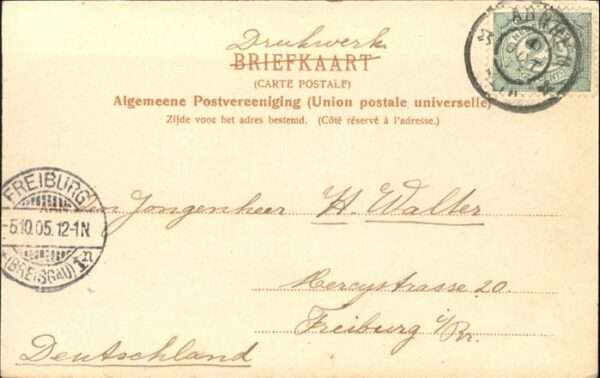 Drukwerk
BRIEFKAART
(CARTE POSTALE)
Algemeene Postvereeniging (Union postale universelle)
Zijde voor het adres bestemd. (Côté réservé à l'adresse.)
ARNHEM
FREIBURG
5.10.05.12-1N
(BREISGAU) 1n
Jongenheer H. Walter
Mercystrasse 20
Freiburg i/Br.
Deutschland